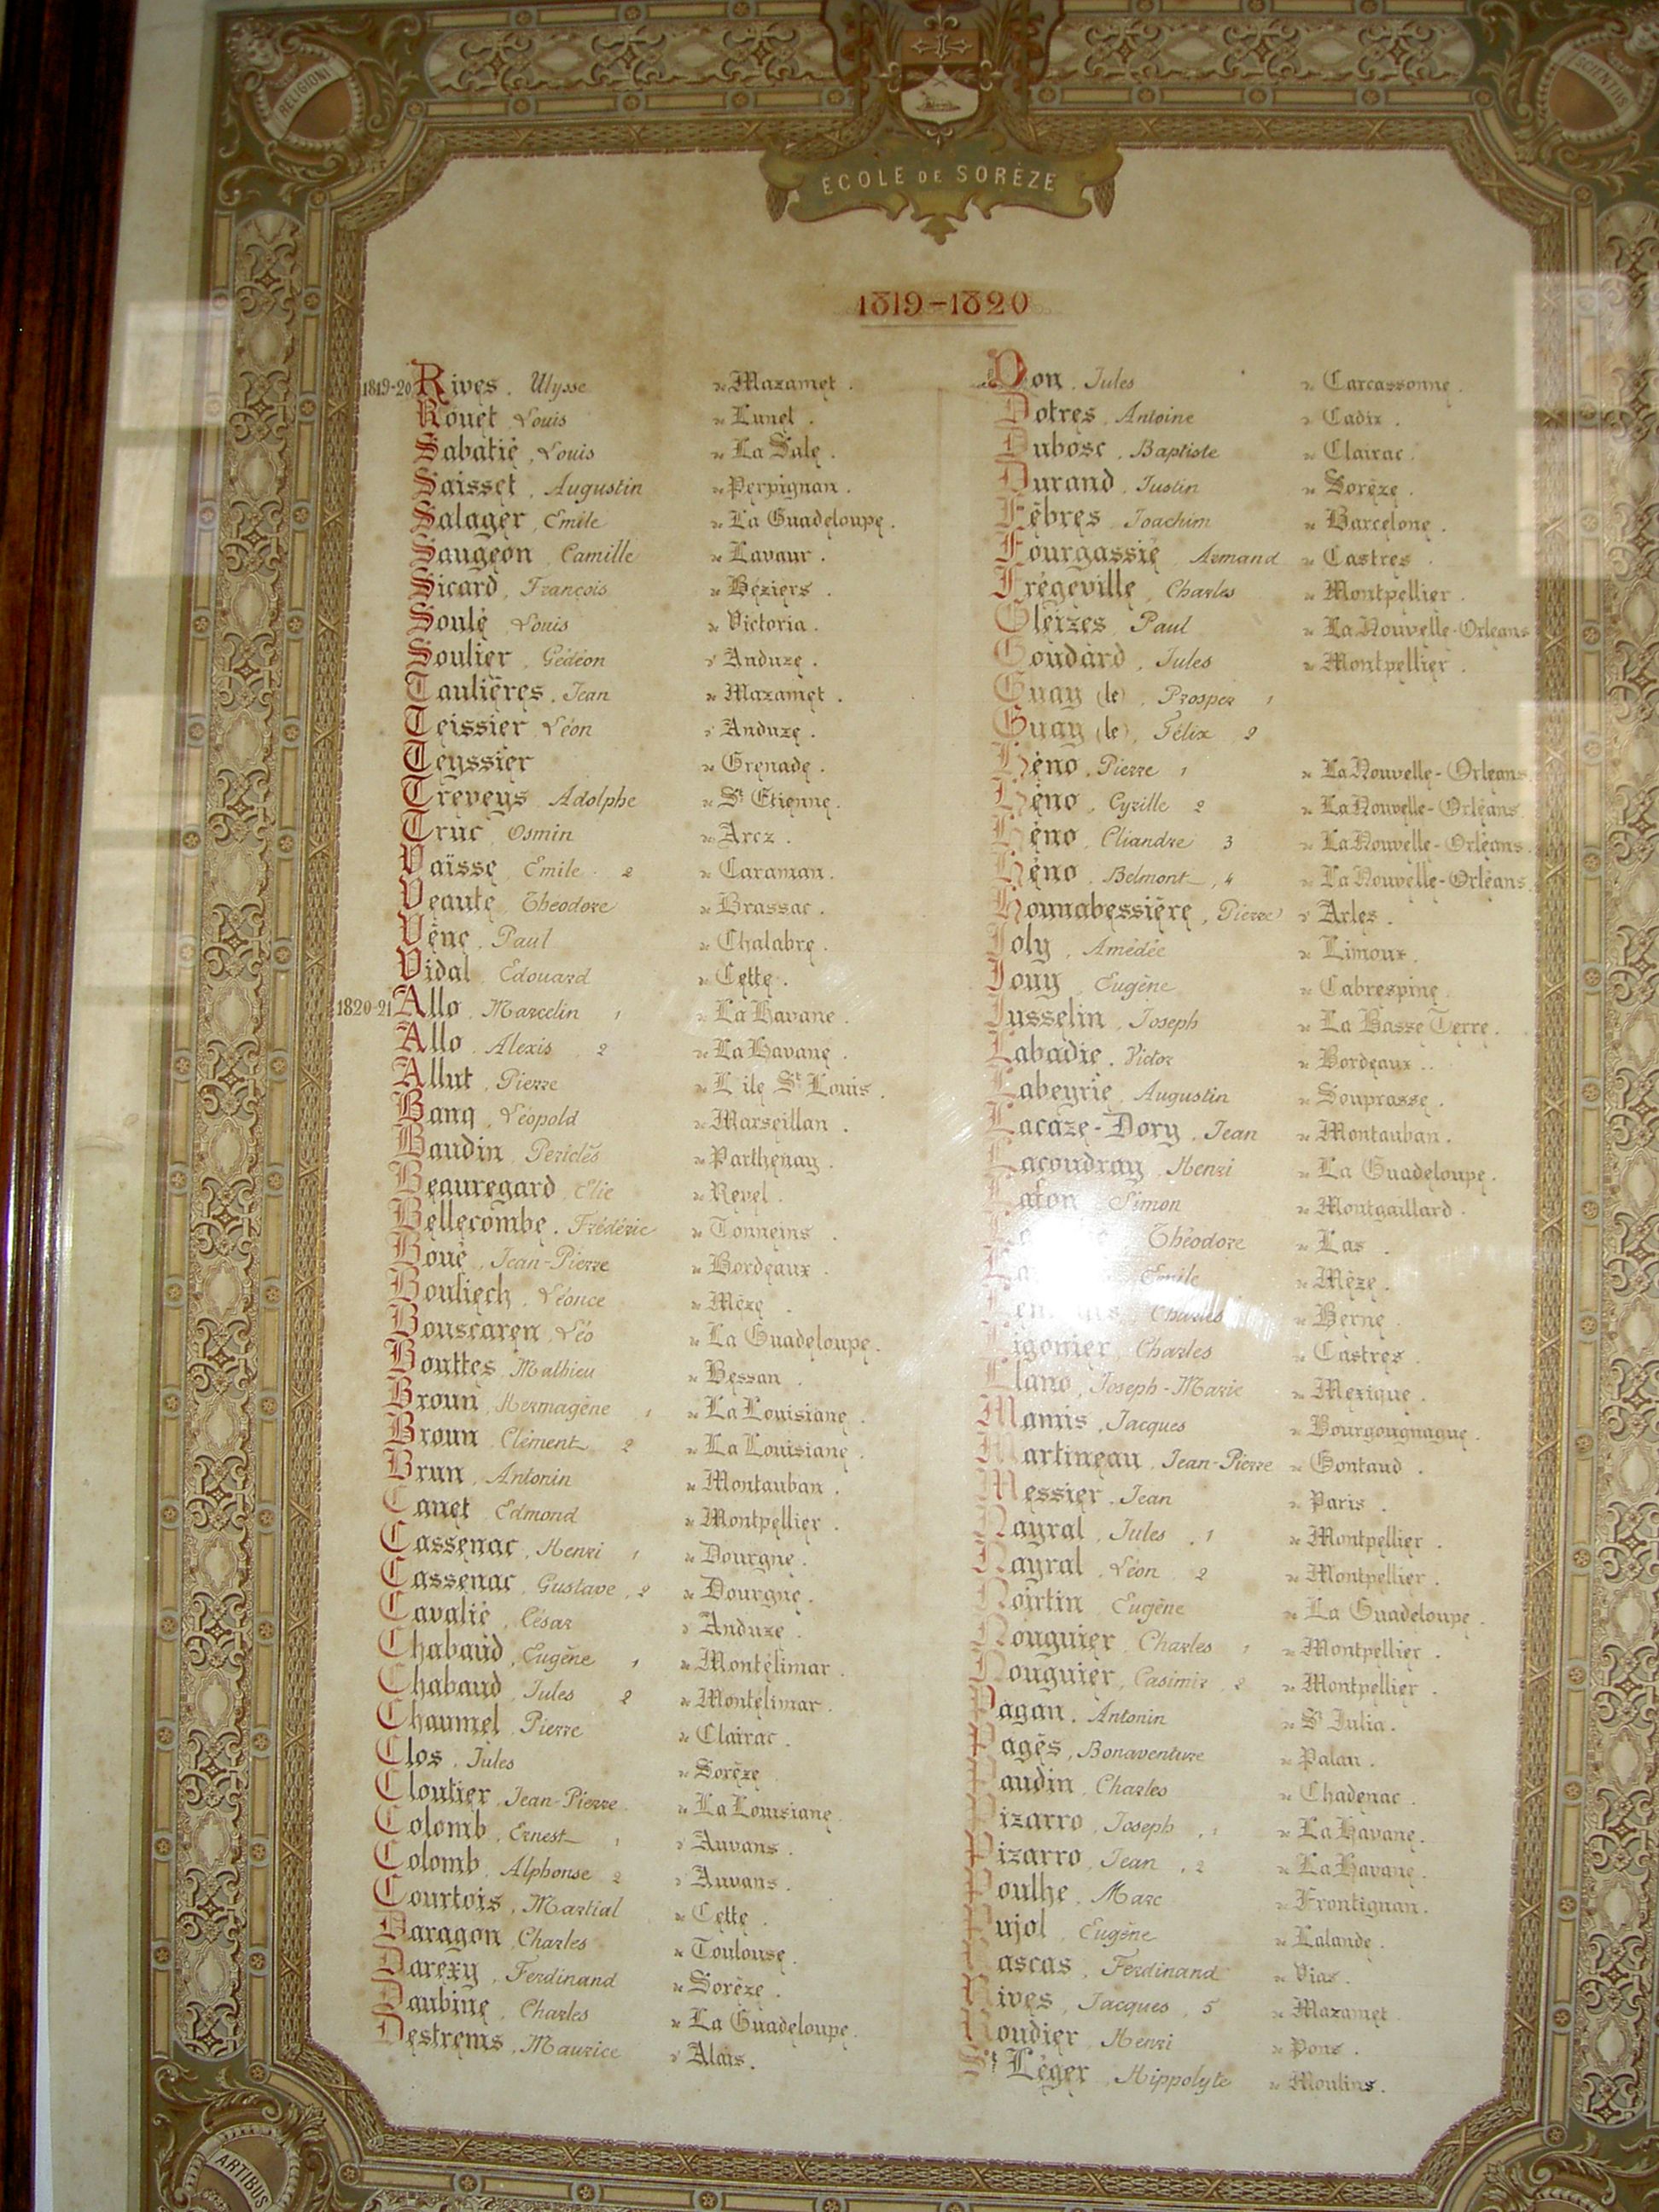 RELIGIONI
SCIENTIIS
ÉCOLE DE SORÈZE
1819-1820
1819-20 Rives. Ulysse de Mazamet.
Rouet Louis de Lunel.
Sabatié, Louis de La Sale.
Saisset, Augustin de Perpignan.
Salager, Emile de La Guadeloupe.
Saugeon, Camille de Lavaur.
Sicard, François de Béziers.
Soulé, Louis de Victoria.
Soulier, Gédéon d' Anduze.
Taulières, Jean de Mazamet.
Teissier, Léon d' Anduze.
Teyssier de Grenade.
Treveys, Adolphe de St Etienne.
Truc, Osmin de Arcz.
Vaïsse, Emile. 2 de Caraman.
Veaute, Theodore de Brassac.
Vène, Paul de Chalabre.
Vidal, Edouard de Cette.
1820-21 Allo, Marcelin 1 de La Havane.
Allo, Alexis, 2 de La Havane.
Allut, Pierre de L'ile St Louis.
Banq, Léopold de Marseillan.
Baudin, Periclès de Parthenay.
Beauregard, Elie de Revel.
Bellecombe, Frédéric de Tonneins.
Boué, Jean-Pierre de Bordeaux.
Bouliech, Léonce de Mèze.
Bouscaren, Léo de La Guadeloupe.
Bouttes, Mathieu de Bessan.
Broun, Hermagène 1 de La Louisiane.
Broun, Clément 2 de La Louisiane.
Brun, Antonin de Montauban.
Canet, Edmond de Montpellier.
Cassenac, Henri 1 de Dourgne.
Cassenac, Gustave, 2 de Dourgne.
Cavalié, César d' Anduze.
Chabaud, Eugène 1 de Montélimar.
Chabaud, Jules 2 de Montélimar.
Chaumel, Pierre de Clairac.
Clos, Jules de Sorèze
Cloutier, Jean-Pierre de La Louisiane.
Colomb, Ernest 1 d' Auvans.
Colomb, Alphonse 2 d' Auvans.
Courtois, Martial de Cette.
Daragon, Charles de Toulouse.
Darexy, Ferdinand de Sorèze.
Daubine, Charles de La Guadeloupe.
Destrems, Maurice d' Alais.
Don, Jules de Carcassonne.
Dotres, Antoine de Cadix.
Dubosc, Baptiste de Clairac.
Durand, Justin de Sorèze.
Fèbres, Joachim de Barcelone.
Fourgassié, Armand de Castres.
Frégeville, Charles de Montpellier.
Gleizes, Paul de La Nouvelle-Orléans
Goudard, Jules de Montpellier.
Guay (le), Prosper 1
Guay (le), Félix 2
Héno, Pierre 1 de La Nouvelle-Orléans
Héno, Cyrille 2 de La Nouvelle-Orléans
Héno, Cliandre 3 de La Nouvelle-Orléans.
Héno, Belmont, 4 de La Nouvelle-Orléans
Hounabessière, Pierre d' Arles.
Joly, Amédée de Limoux.
Jouy, Eugène de Cabrespine.
Jusselin, Joseph de La Basse Terre.
Labadie, Victor de Bordeaux.
Labeyrie, Augustin de Souprasse.
Lacaze-Dory, Jean de Montauban.
Lacoudray, Henri de La Guadeloupe.
Lafon Simon de Montgaillard.
Théodore de Las.
Emile de Mèze.
Charles de Berne.
Ligonier, Charles de Castres.
Llano, Joseph-Marie de Mexique.
Mamis, Jacques de Bourgougnague.
Martineau, Jean-Pierre de Gontaud.
Messier, Jean de Paris.
Nayral, Jules, 1 de Montpellier.
Nayral, Léon, 2 de Montpellier.
Noirtin Eugène de La Guadeloupe.
Nouguier, Charles 1 de Montpellier.
Nouguier, Casimir, 2 de Montpellier.
Pagan, Antonin de St Julia.
Pagès, Bonaventure de Palau.
Paudin, Charles de Chadenac.
Pizarro, Joseph, 1 de La Havane.
Pizarro, Jean, 2 de La Havane.
Poulhe, Marc de Frontignan.
Pujol, Eugène de Lalande.
Rascas, Ferdinand de Vias.
Rives, Jacques, 5 de Mazamet
Roudier, Henri de Pons.
St Léger, Hippolyte de Moulins.
ARTIBUS